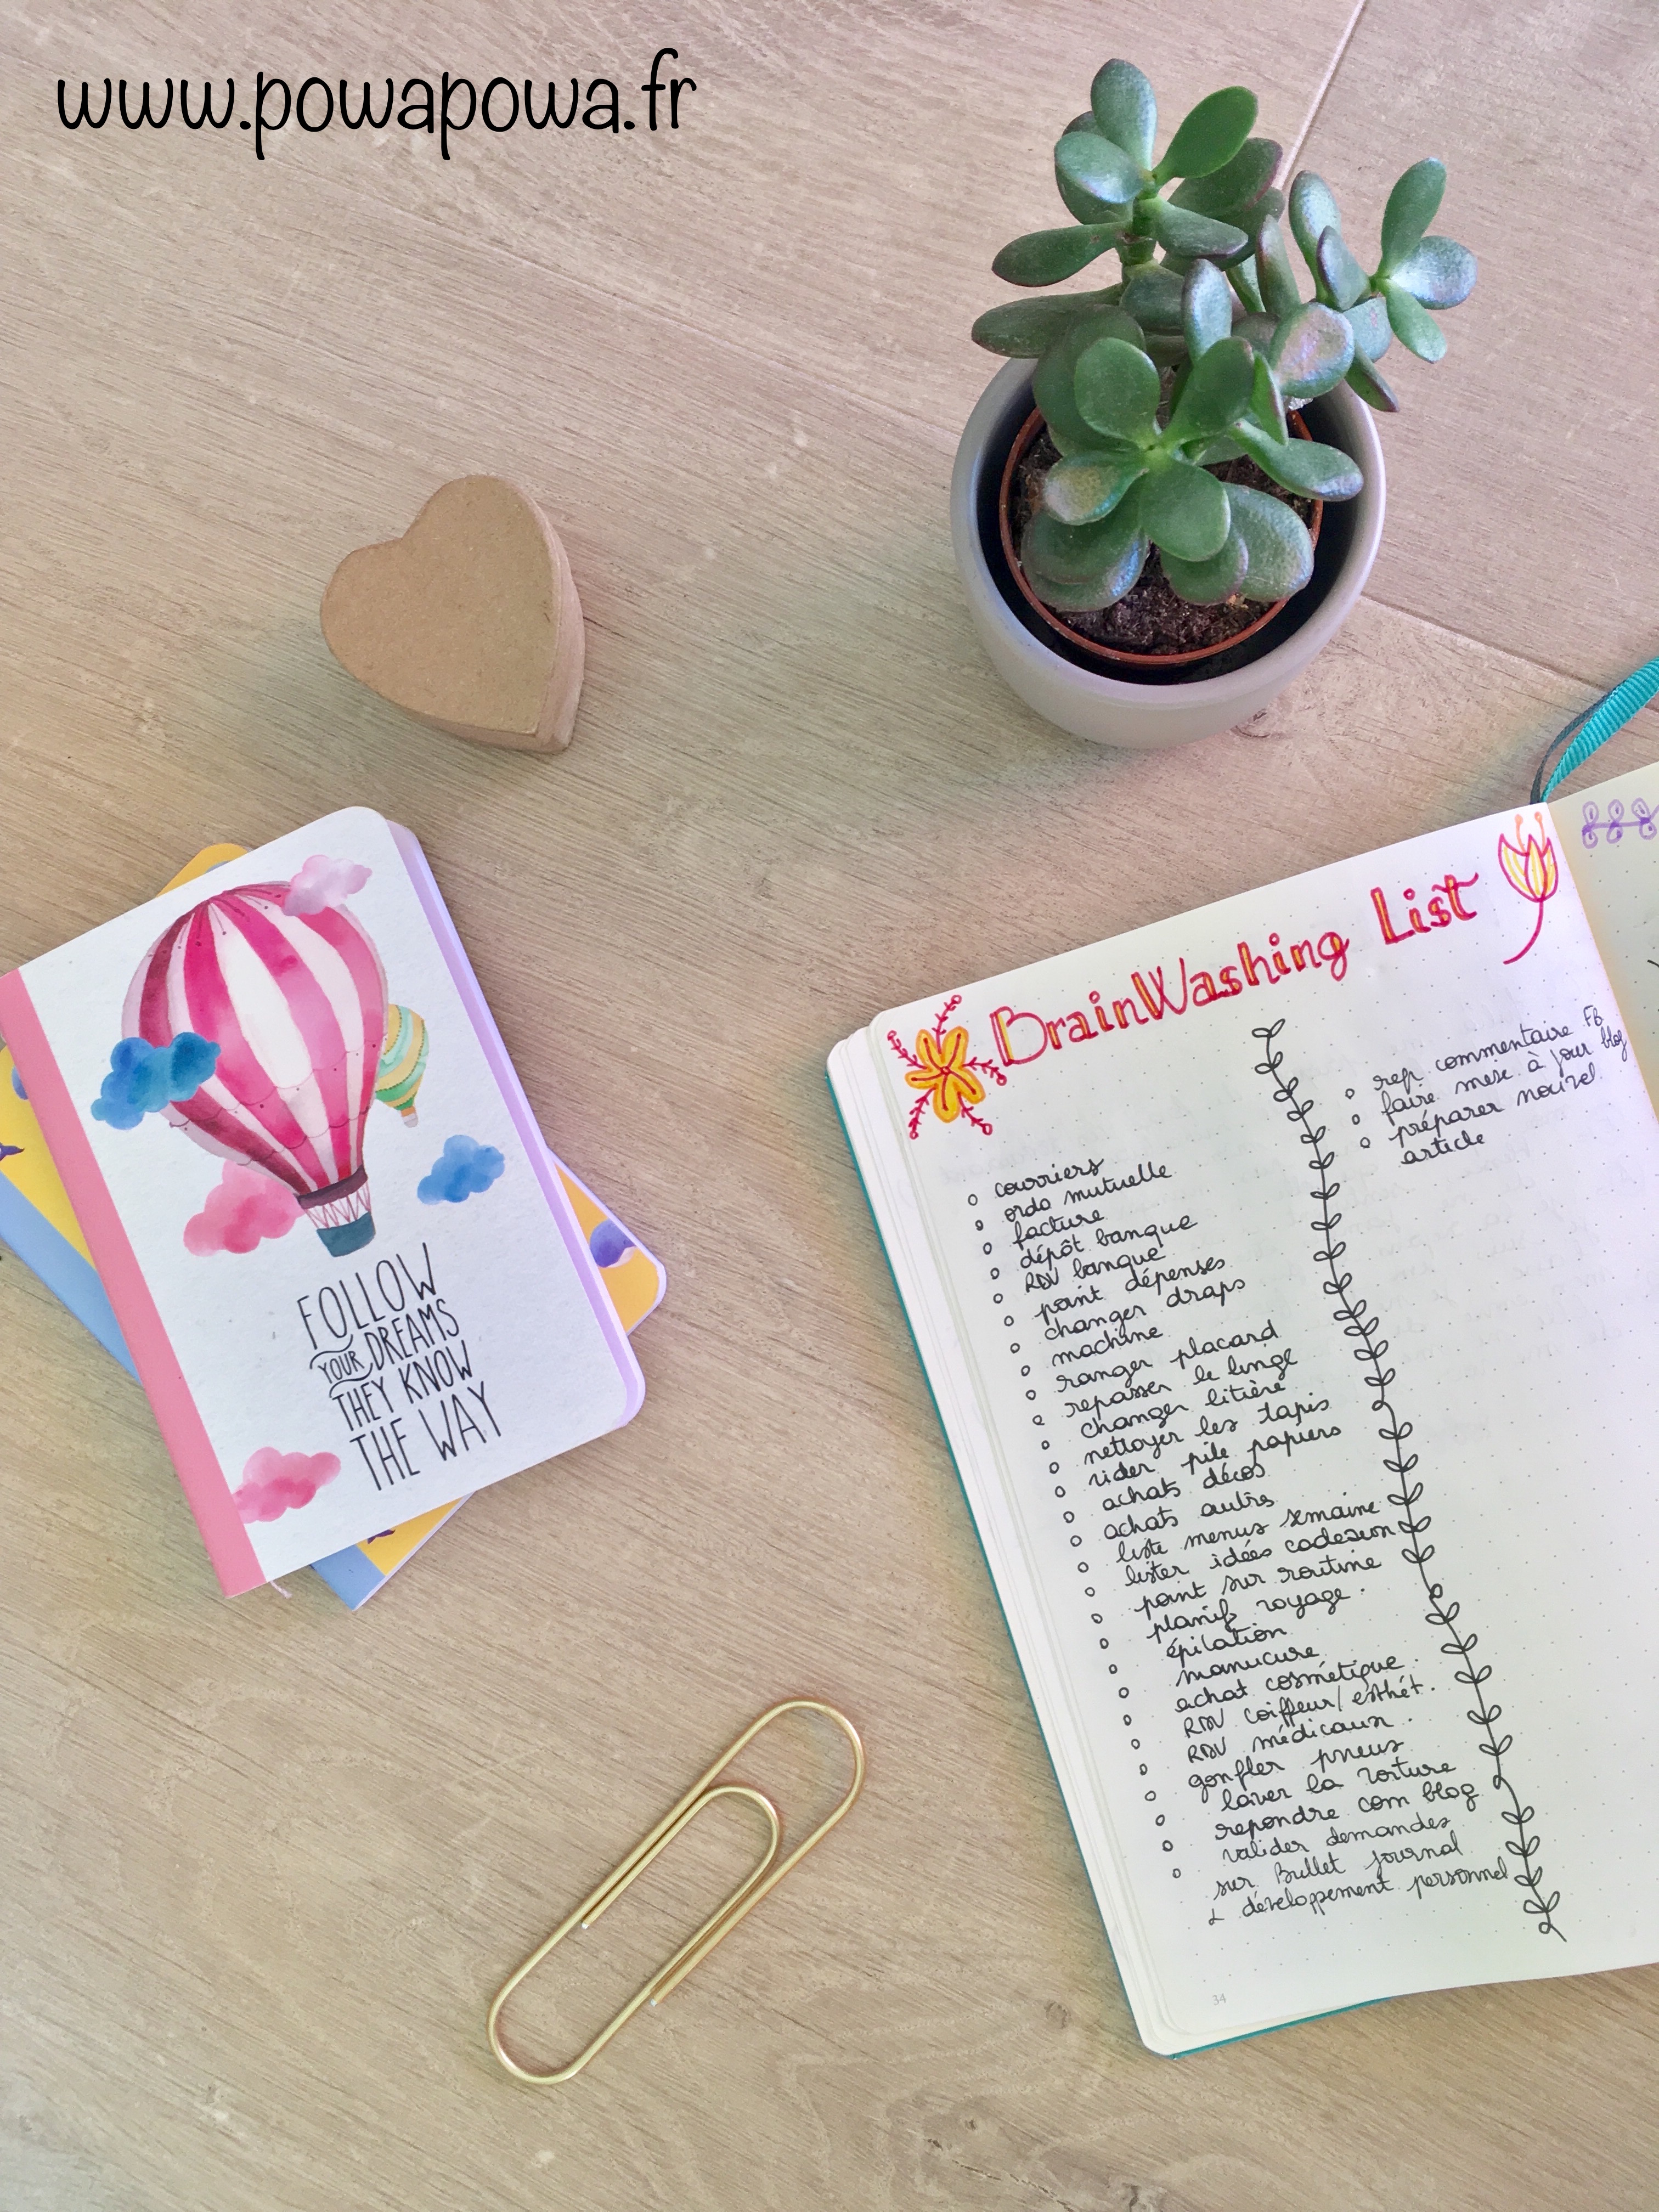 www.powapowa.fr
FOLLOW
YOUR DREAMS
THEY KNOW
THE WAY
BrainWashing List
courriers
ordo mutuelle
facture
dépôt banque
RDV banque
point dépenses
changer draps
machine
ranger placard
repasser le linge
changer litière
nettoyer les tapis
vider pile papiers
achats décos
achats autres
liste menus semaine
lister idées cadeaux
point sur routine
planif voyage.
épilation
manucure
achat cosmétique.
RDV coiffeur/esthét.
RDV médicaux.
gonfler pneus
laver la voiture
repondre com blog
valider demandes
sur Bullet journal
& développement personnel
rep. commentaire FB
faire mise à jour blog
préparer nouvel
article
34